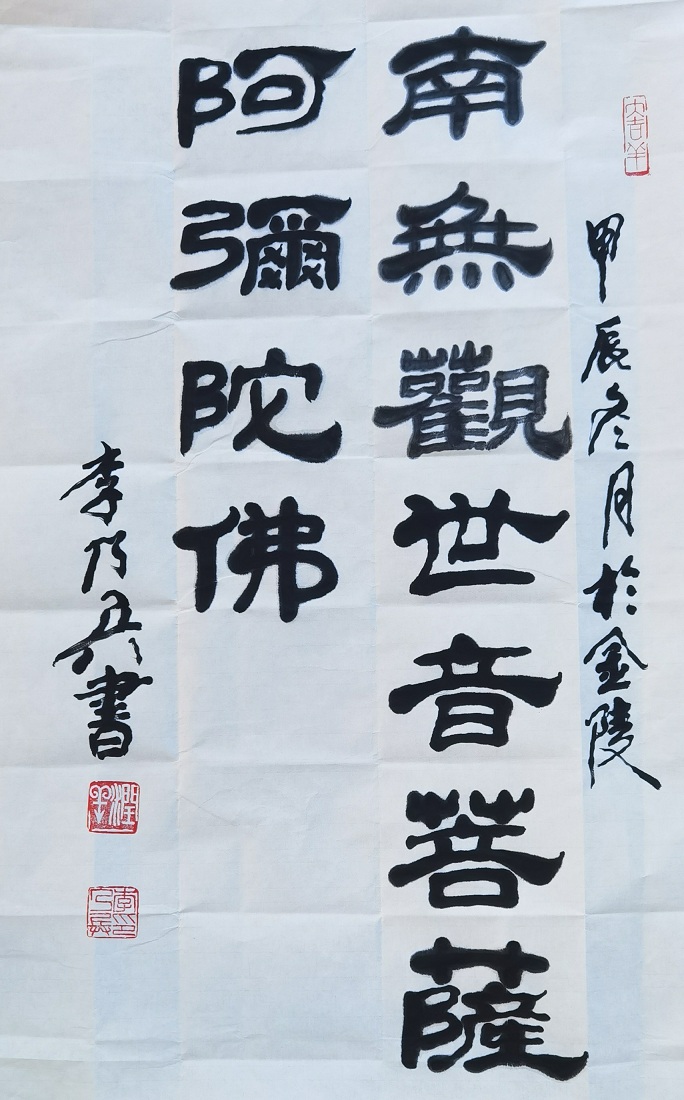 甲辰冬月於金陵
南無觀世音菩薩
阿彌陀佛
李乃兵書